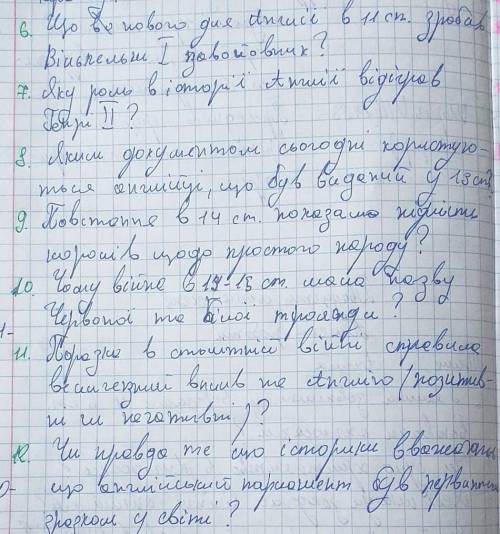 6. Що нового для Англії в 11 ст. зробив
Вільгельм I завойовник?
7. Яку роль в історії Англії відіграв
Генрі II?
8. Яким документом сьогодні користую-
ться англійці, що був виданий у 13 ст?
9. Повстання в 14 ст. показало
королів щодо простого народу?
10. Чому війна в 14-15 ст. мала назву
Червоної та Білої троянди?
11. Поразка в столітній війні справила
величезний вплив на Англію (позитив-
ні чи негативні)?
12. Чи правда те що історики вважають
що англійський парламент був первинним
зразком у світі?